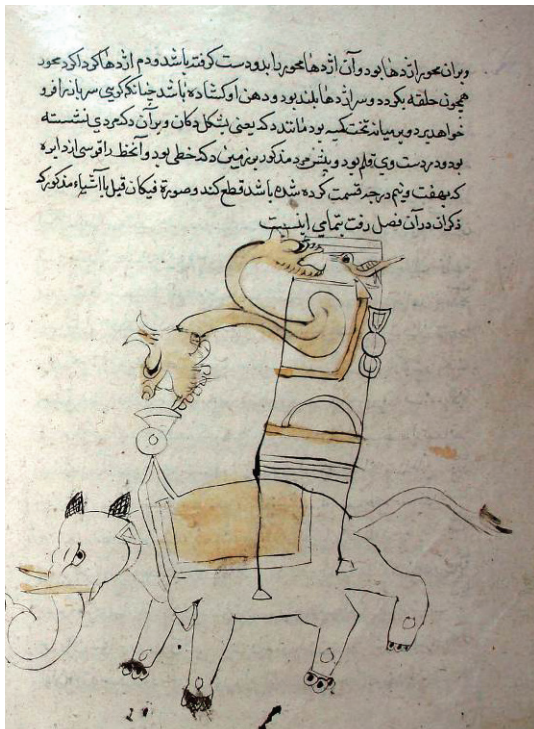 وبران محور اژدها بود و آن اژدها محور را بدو دست گرفته باشد و دم اژدها کرد اکرد محور
همچون حلقه بکردد و سر اژدها بلند بود و دهن او کشاده باشد چنانکه گویی سر باز را فرو
خواهد برد و بر میانه تخت کسه بود مانند دکه یعنی بشکل دکان و بر آن دکه مردی نشسته
بود و در دست وی قلم بود و پیش مرد مذکور بر زمین دکه خطی بود و آن خط را قوسی از دایره
که بهفت و نیم درجه قسمت کرده شده باشد قطع کند و صورة فیکان قیل با آشیاء مذکور که
ذکر آن در آن فصل رفت بتمامی اینست